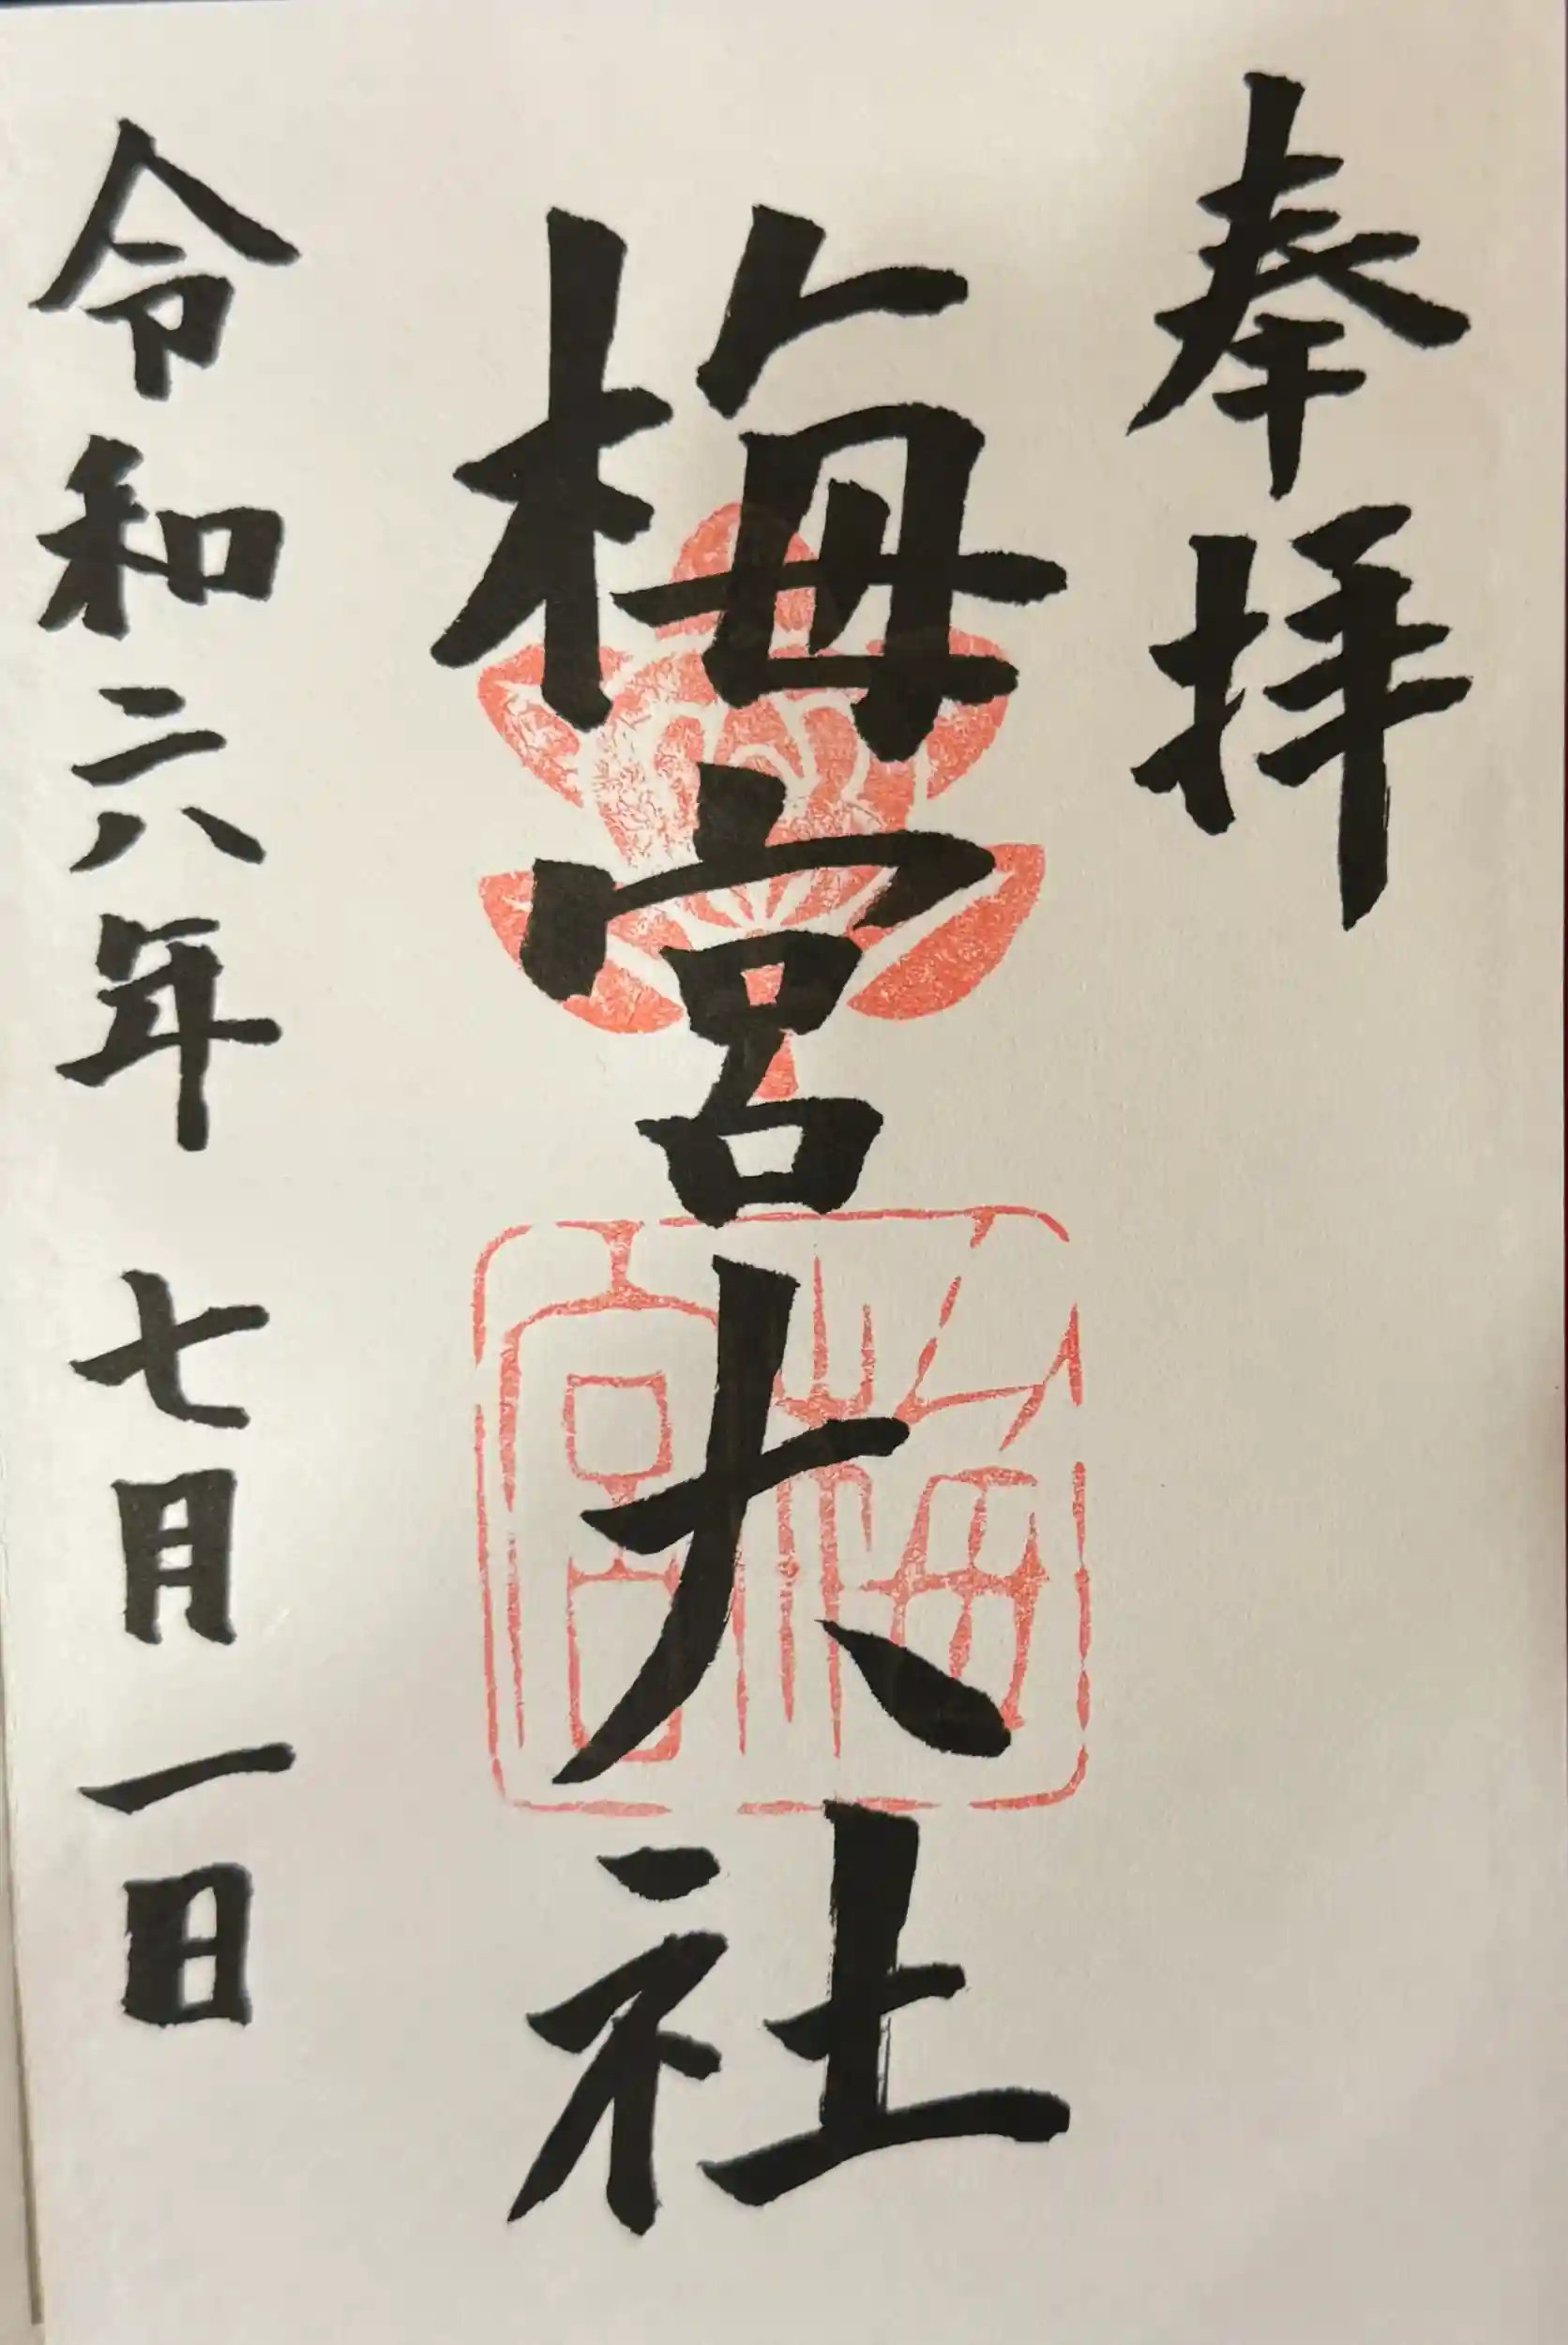 奉拝
梅宮大社
梅宮
令和六年 七月一日